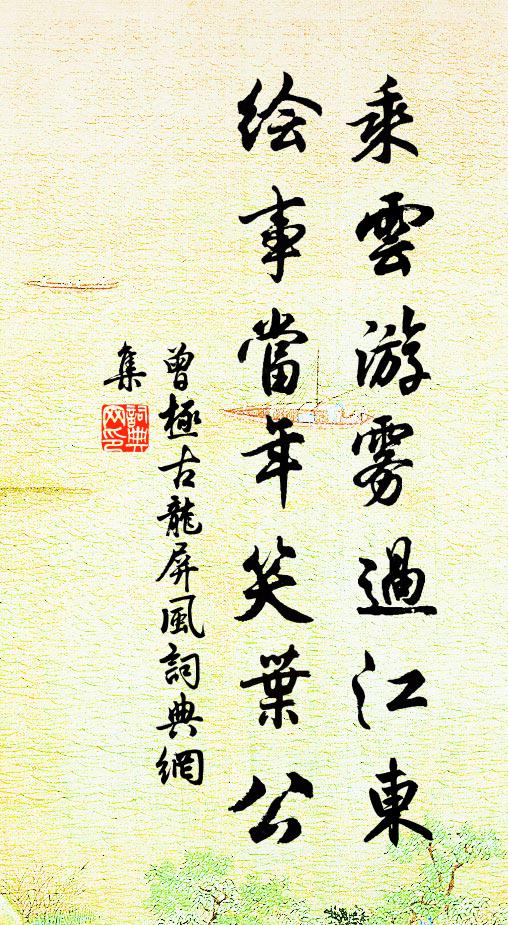 乘雲游雾過江東
绘事當年笑葉公
曾極古龍屏風詞典網
集
詞典
网印